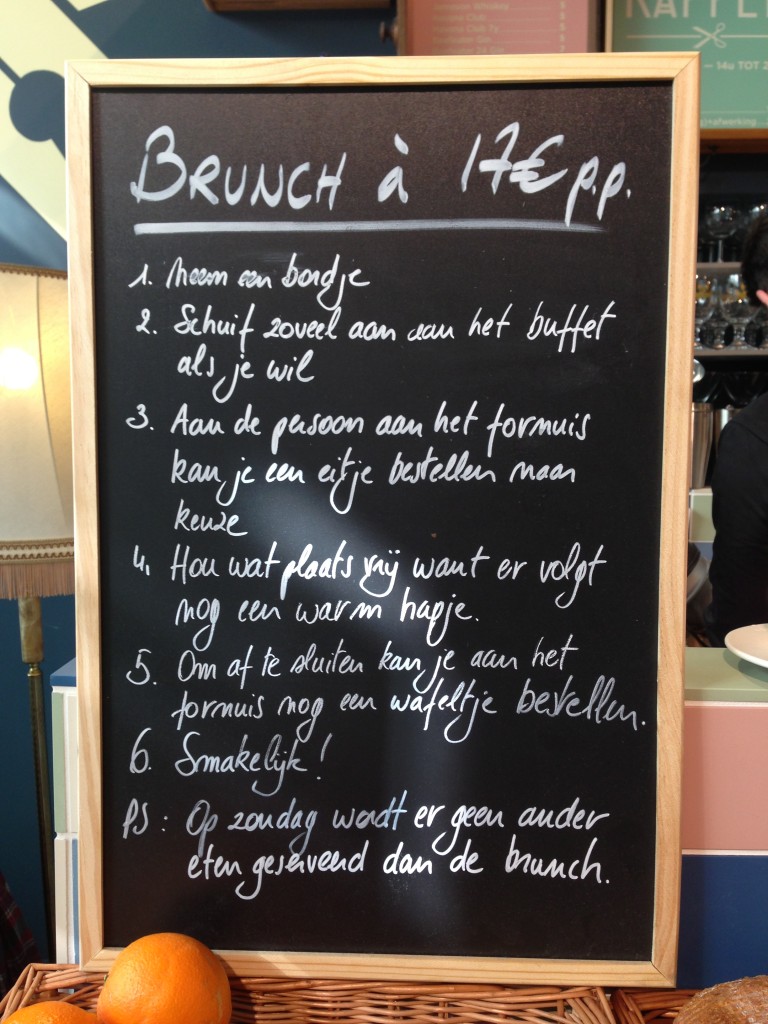 BRUNCH à 17€ p.p.
1. neem een bordje
2. Schuif zoveel aan aan het buffet
als je wil
3. Aan de persoon aan het fornuis
kan je een eitje bestellen naar
keuze
4. Hou wat plaats vrij want er volgt
nog een warm hapje.
5. Om af te sluiten kan je aan het
fornuis nog een wafeltje bestellen.
6. Smakelijk!
PS: Op zondag wordt er geen ander
eten geserveerd dan de brunch.